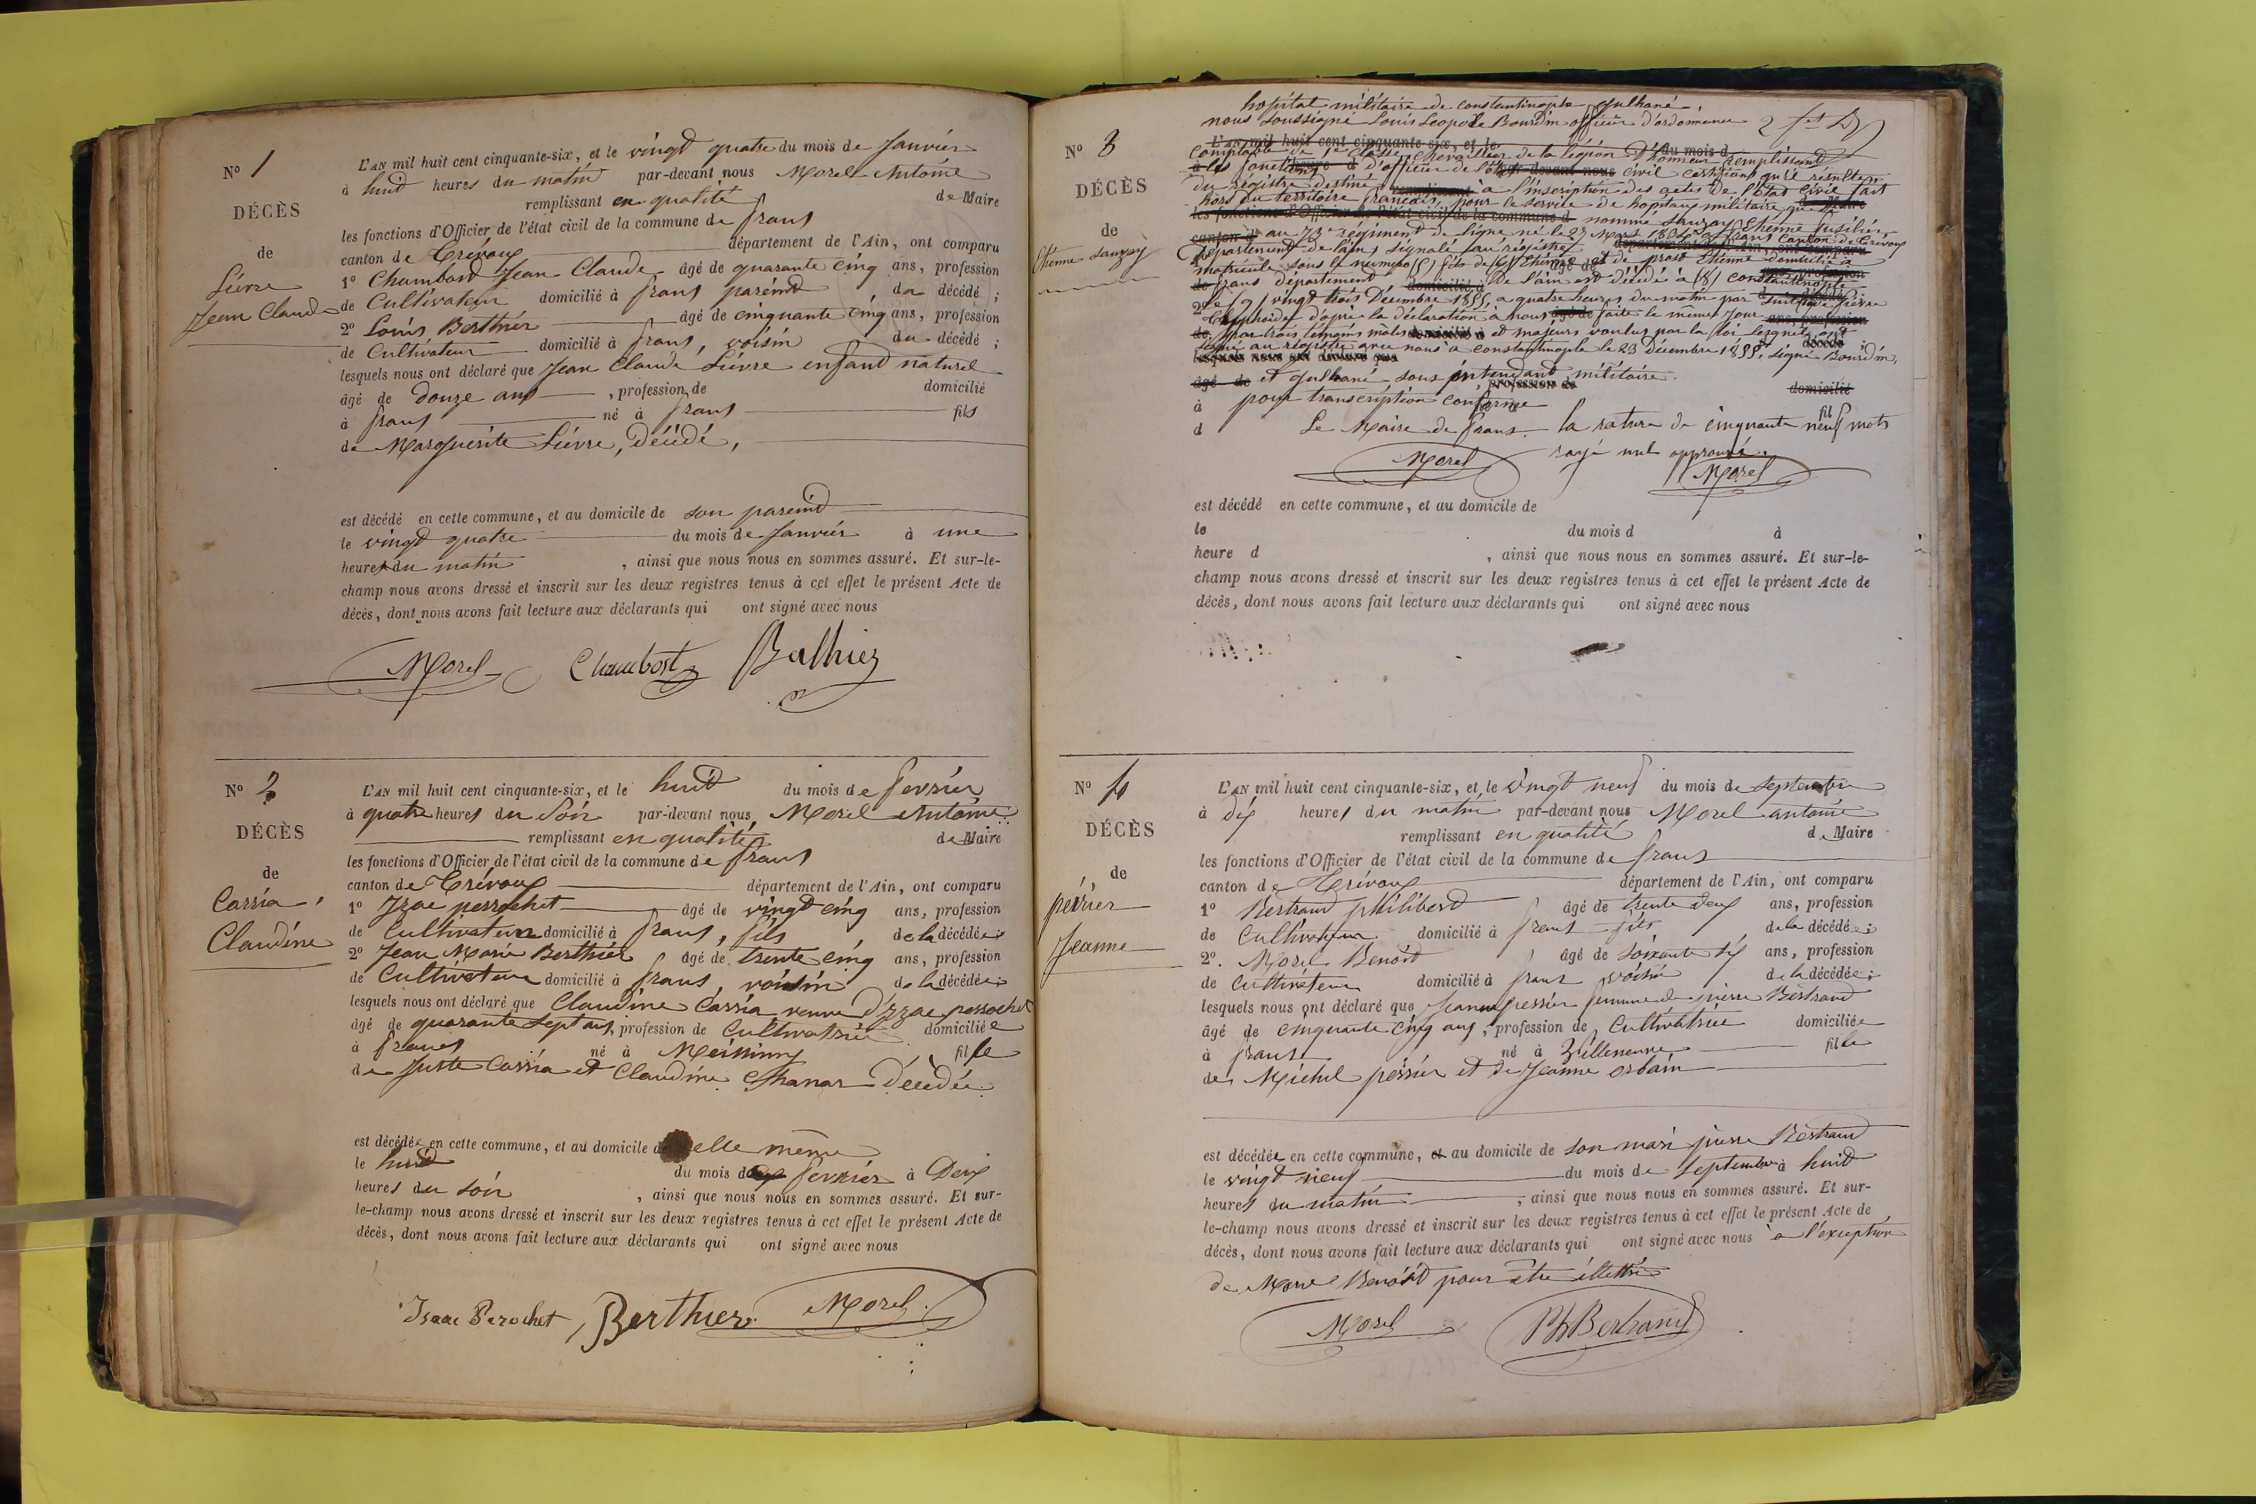 N° 1
DÉCÈS
de
Lièvre
Jean Claude
L'AN mil huit cent cinquante-six, et le vingt quatre du mois de Janvier
à huit heures du matin par-devant nous Morel Antoine
remplissant en qualité de Maire
les fonctions d'Officier de l'état civil de la commune de frans
canton de Trévoux département de l'Ain, ont comparu
1° Chambost Jean Claude âgé de quarante cinq ans, profession
de Cultivateur domicilié à frans parent du décédé ;
2° Louis Berthier âgé de cinquante cinq ans, profession
de Cultivateur domicilié à frans, voisin du décédé ;
lesquels nous ont déclaré que Jean Claude Lièvre enfant naturel
âgé de douze ans , profession de domicilié
à frans né à frans fils
de Marguerite Lièvre, décédé,
est décédé en cette commune, et au domicile de son parent
le vingt quatre du mois de Janvier à une
heures du matin , ainsi que nous nous en sommes assuré. Et sur-le-
champ nous avons dressé et inscrit sur les deux registres tenus à cet effet le présent Acte de
décès, dont nous avons fait lecture aux déclarants qui ont signé avec nous
Morel Chambost Bathiez
N° 2
DÉCÈS
de
Carria
Claudine
L'AN mil huit cent cinquante-six, et le huit du mois de fevrier
à quatre heures du Soir par-devant nous Morel Antoine
remplissant en qualité de Maire
les fonctions d'Officier de l'état civil de la commune de frans
canton de Trévoux département de l'Ain, ont comparu
1° Izac perrochet âgé de vingt cinq ans, profession
de Cultivateur domicilié à frans, fils de la décédée ;
2° Jean Marie Berthier âgé de trente cinq ans, profession
de Cultivateur domicilié à frans, voisin de la décédée ;
lesquels nous ont déclaré que Claudine Carria veuve d'Izzac perrochet
âgé de quarante sept ans, profession de Cultivatrice domiciliée
à frans né à Meissimy fille
de Juste Carria et Claudine Chanar Décédée
est décédée en cette commune, et au domicile d'elle même
le huit du mois de fevrier à Deux
heures du soir , ainsi que nous nous en sommes assuré. Et sur-
le-champ nous avons dressé et inscrit sur les deux registres tenus à cet effet le présent Acte de
décès, dont nous avons fait lecture aux déclarants qui ont signé avec nous
Isaac Perochet Berthier Morel
hopital militaire de constantinople Gulhané.
nous soussigné Louis Leopole Bourdin officier d'ordonnance
N° 3
DÉCÈS
de
Etienne Sauzay
L'AN mil huit cent cinquante-six, et le du mois d
comptable de 1e classe, chevallier de la légion d'honneur remplissant
à les fonctions heure d d'officier de l'état par-devant nous civil certifions qu'il resulte
du régistre destiné remplissant à l'inscription des actes de l'état civil fait
hors du territoire français, pour le service de hopitaux militaire que de Maire
les fonctions d'Officier de l'état civil de la commune d nommé Sauzay Etienne fusilier
canton d au 73e regiment de ligne né le 29 Mars 1834 à frans canton de Trévoux
département de l'Ain signalé au régistre département de l'Ain, ont comparu
matricule sous le numero (5) fils de (6) Etienne et de prost Etienne domicilié à
de frans département domicilié à De l'ain est décédé à (8) constantinople
2° le (9) vingt trois Décembre 1855, a quatre heures du matin par suite de fièvre
typhoïde d'après la déclaration a nous âgé de faite le même jour ans, profession
de par trois temoins mâles domicilié à et majeurs voulus par la loi lesquels ont
signé au régistre avec nous a constantinople le 23 Décembre 1855, signé Bourdin,
lesquels nous ont déclaré que
âgé de et Gulhané sous intendant militaire. profession de domicilié
à pour transcription conforme né à fil
d Le Maire de frans. la rature de cinquante neuf mots
rayé nul approuvé.
Morel Morel
est décédé en cette commune, et au domicile de
le du mois d à
heure d , ainsi que nous nous en sommes assuré. Et sur-le-
champ nous avons dressé et inscrit sur les deux registres tenus à cet effet le présent Acte de
décès, dont nous avons fait lecture aux déclarants qui ont signé avec nous
N° 4
DÉCÈS
de
périer
Jeanne
L'AN mil huit cent cinquante-six, et le vingt neuf du mois de septembre
à dix heures du matin par-devant nous Morel antoine
remplissant en qualité de Maire
les fonctions d'Officier de l'état civil de la commune de frans
canton de Trévoux département de l'Ain, ont comparu
1° Bertrand philibert âgé de trente deux ans, profession
de Cultivateur domicilié à frans fils de la décédée ;
2°. Morel Benoit âgé de soixante dix ans, profession
de Cultivateur domicilié à frans voisin de la décédée ;
lesquels nous ont déclaré que Jeanne perrier femme de pierre Bertrand
âgé de cinquante cinq ans, profession de Cultivatrice domiciliée
à frans né à Villeneuve fille
de Michel périer et de Jeanne orbain
est décédée en cette commune, et au domicile de son mari pierre Bertrand
le vingt neuf du mois de septembre à huit
heures du matin , ainsi que nous nous en sommes assuré. Et sur-
le-champ nous avons dressé et inscrit sur les deux registres tenus à cet effet le présent Acte de
décès, dont nous avons fait lecture aux déclarants qui ont signé avec nous à l'exception
de Morel Benoit pour être illettré
Morel Ph Bertrand